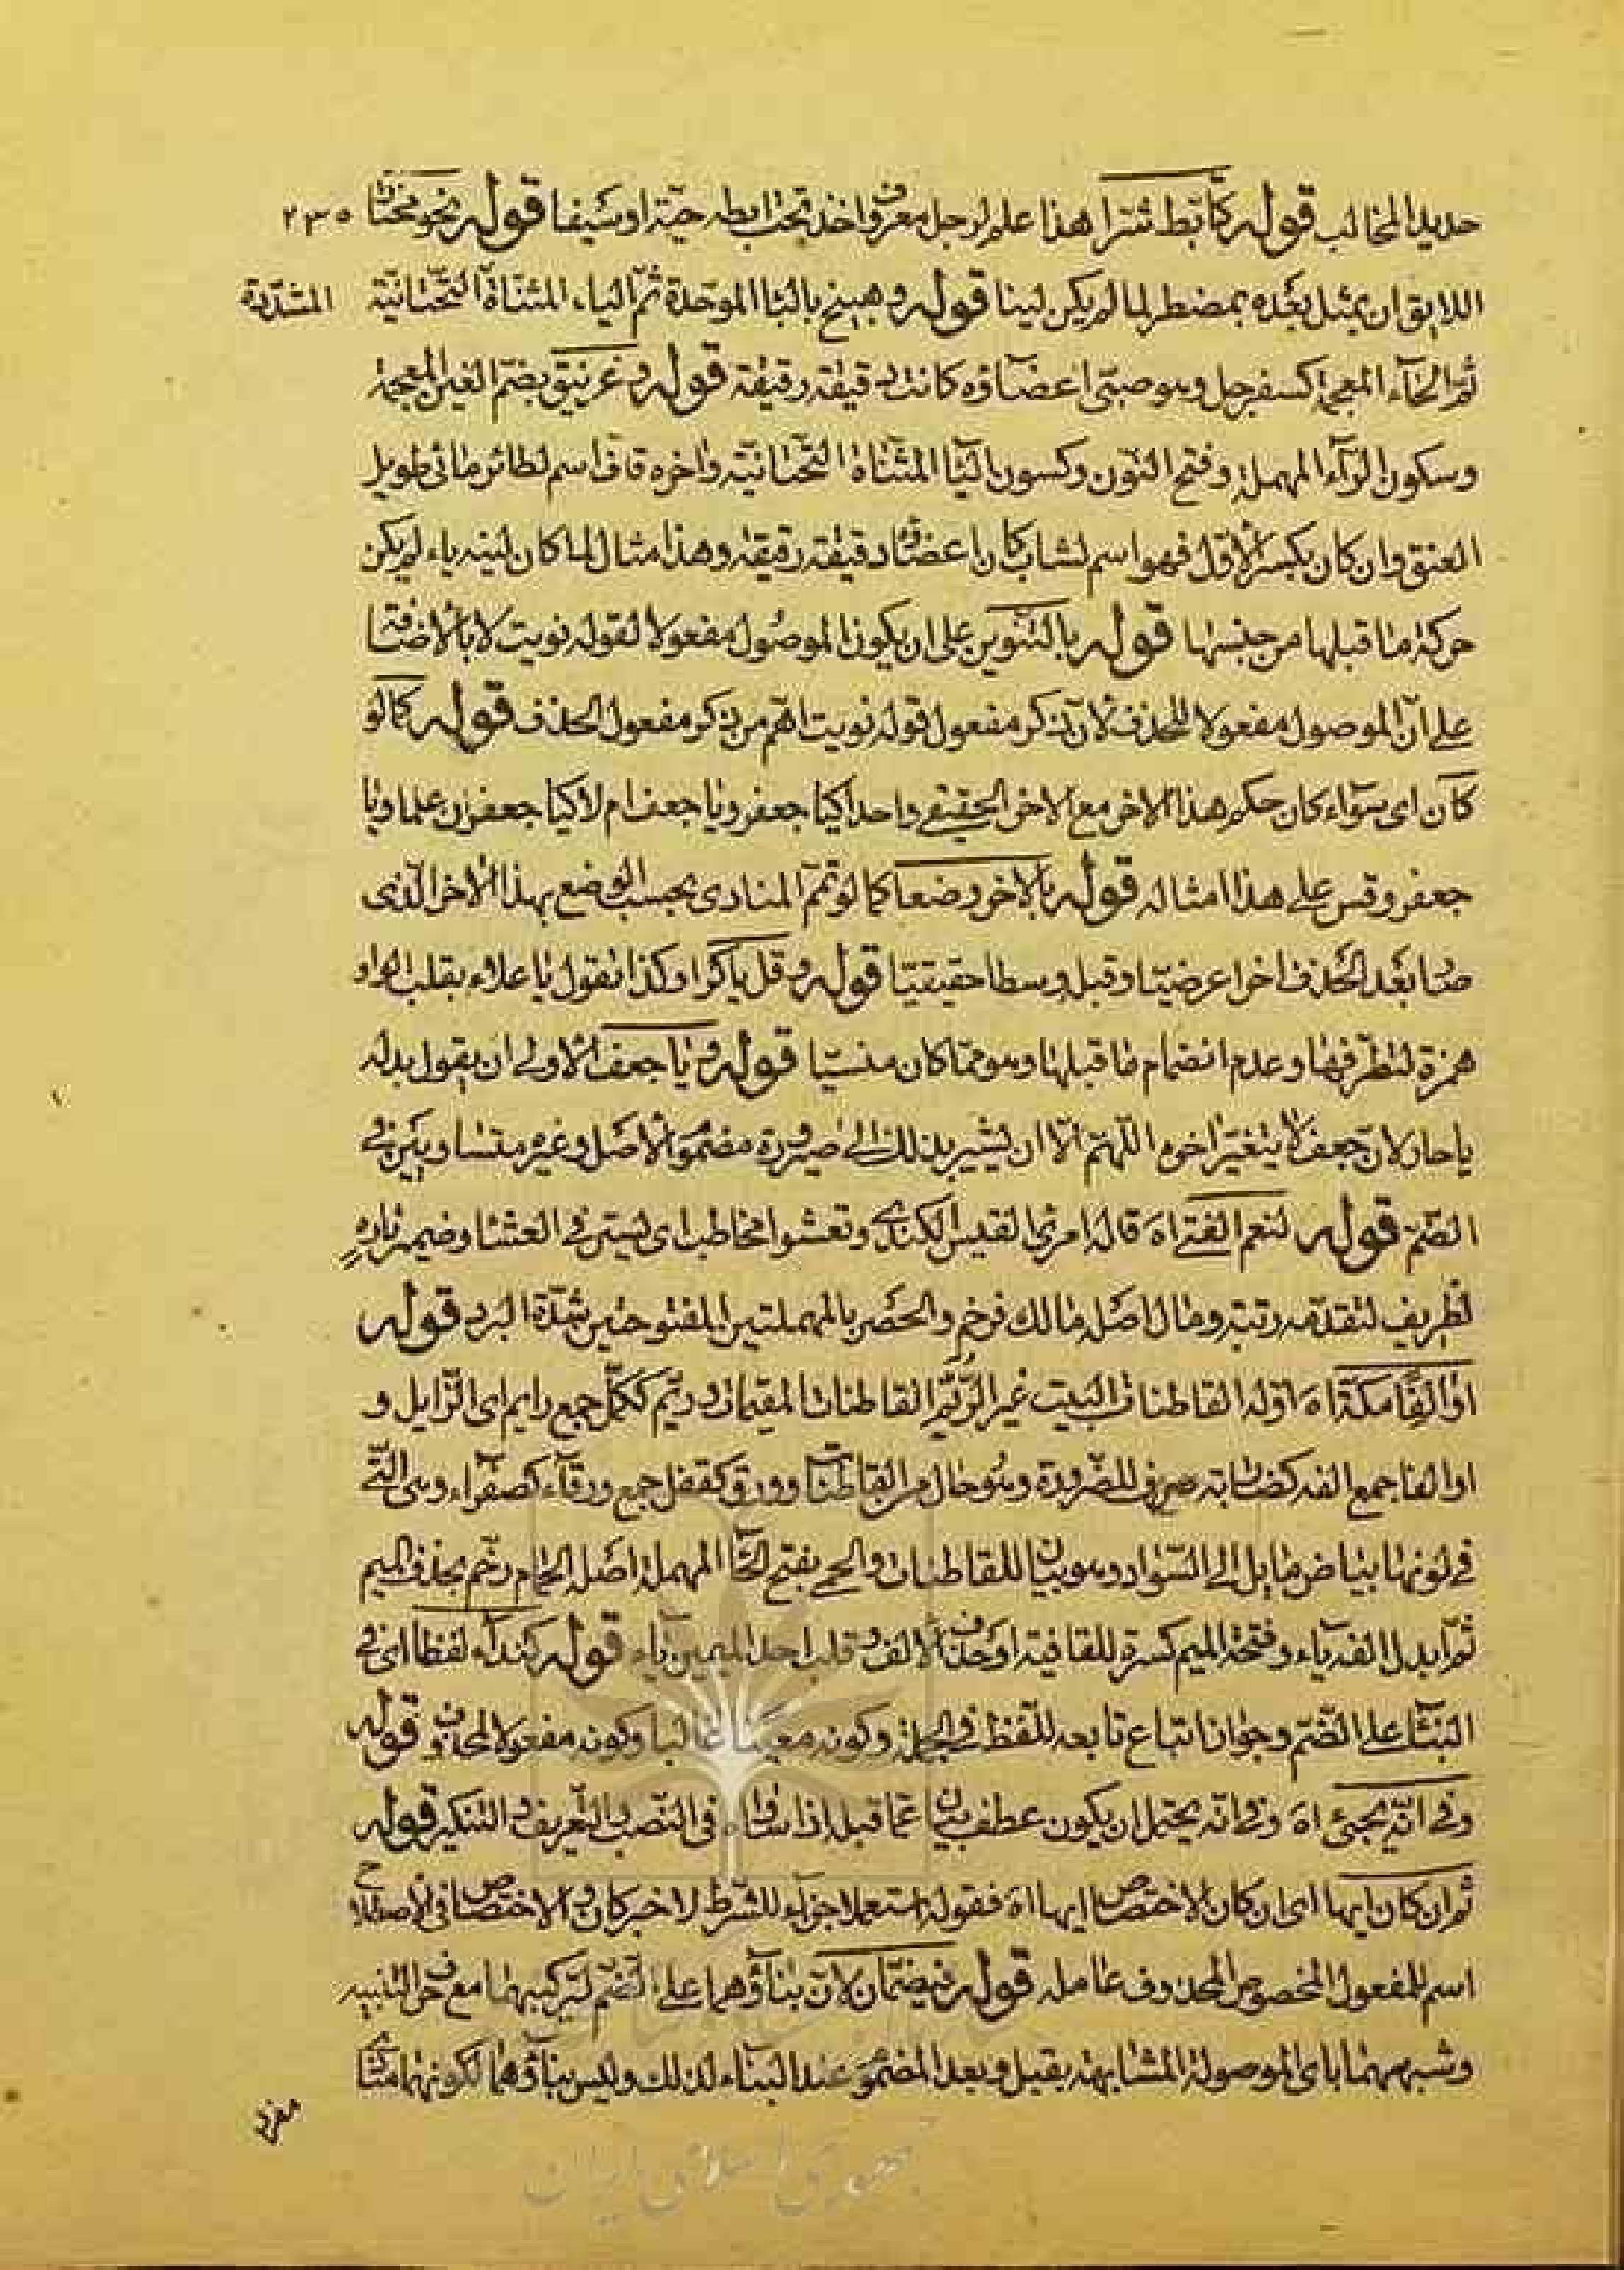 حديد المخالب قوله كتأبط شرا هذا علم لرجل معروف اخذ تحت ابطه حية او سيفا قوله نحو مختار ٢٣٥
اللايق ان يمثل بعده بمضطر لما لم يكن لينا قوله وهبيخ بالبا الموحدة ثم الياء المثناة التحتانية المشددة
ثم الخاء المعجمة كسفرجل وهو صبى اعضاؤه كانت دقيقة رقيقة قوله وغرنيق بضم الغين المعجمة
وسكون الراء المهملة وفتح النون وكسون اليا المثناة التحتانية واخره قاف اسم لطائر مائى طويل
العنق وان كان بكسر الاول فهو اسم لشاب كان اعضاؤه دقيقة رقيقة وهذا مثال لما كان لينه ياء لم يكن
حركة ما قبلها من جنسها قوله بالتنوين على ان يكون الموصول مفعولا لقوله نويت لا بالاضافة
على ان الموصول مفعولا للحذف لان ذكر مفعول قوله نويت اهم من ذكر مفعول الحذف قوله كما لو
كان اى سواء كان حكم هذا الاخر مع الاخر الحقيقى واحدا كيا جعفر ويا جعف ام لا كيا جعفر علما ويا
جعفر وقس على هذا امثاله قوله بالاخر وضعا كما لو تمم المنادى بحسب الوضع بهذا الاخر الذى
صار بعد الحذف اخرا عرضيا وقبله وسطا حقيقيا قوله وقل ياكرا وكذا نقول يا علاء بقلب الواو
همزة لتطرفها وعدم انضمام ما قبلها وهو مما كان منسيا قوله ويا جعف الاولى ان يقول بدله
يا حار لان جعف لا يتغير اخره اللهم الا ان يشير بذلك الى صيرورة مضموم الاصل وغيره متساويين فى
الضم قوله لنعم الفتى اه قاله امرئ القيس الكندى وتعشوا مخاطب اى ليستر فى العشا وضمير ناره
لطريف لتقدمه رتبة ومال اصله مالك فرخم والحضر بالمهملتين المفتوحتين شدة البرد قوله
اوالفا مكة اه اوله القاطنات البيت غير الريم القاطنات المقيمات وريم ككمل جمع رايم اى الزايل و
اوالفا جمع الفه كضاربة صرف للضرورة وهو حال من القاطنات وورق كقفل جمع ورقاء كصفراء وهى التى
فى لونها بياض مايل الى السواد وهو بيان للقاطنات والحمى بفتح الحا المهملة اصله الحمام رخم بحذف الميم
ثم ابدل الفه ياء وفتحة الميم كسرة للقافية او حذف الالف وقلب احد الميمين ياء قوله كنداء لفظا اى فى
البنا على الضم وجواز اتباع تابعه للفظ فى الجملة وكونه معينا غالبا وكونه مفعولا لمحذوف قوله
وفى انه يجئ اه وفى انه يحتمل ان يكون عطف بيان عما قبله اذا ساواه فى النصب والتعريف والتنكير قوله
ثم ان كان ايها اى ان كان الاختصاص ايها اه فقوله استعملا جزاء للشرط لا خبر كان والاختصاص فى الاصطلاح
اسم للمفعول المخصوص المحذوف عامله قوله فيضمان لان بناؤهما على الضم لتركيبهما مع حرف التنبيه
وشبههما باى الموصولة المشابهة بقبل وبعد المضموم عند البناء لذلك وليس بناؤهما لكونهما منادى
مفرد